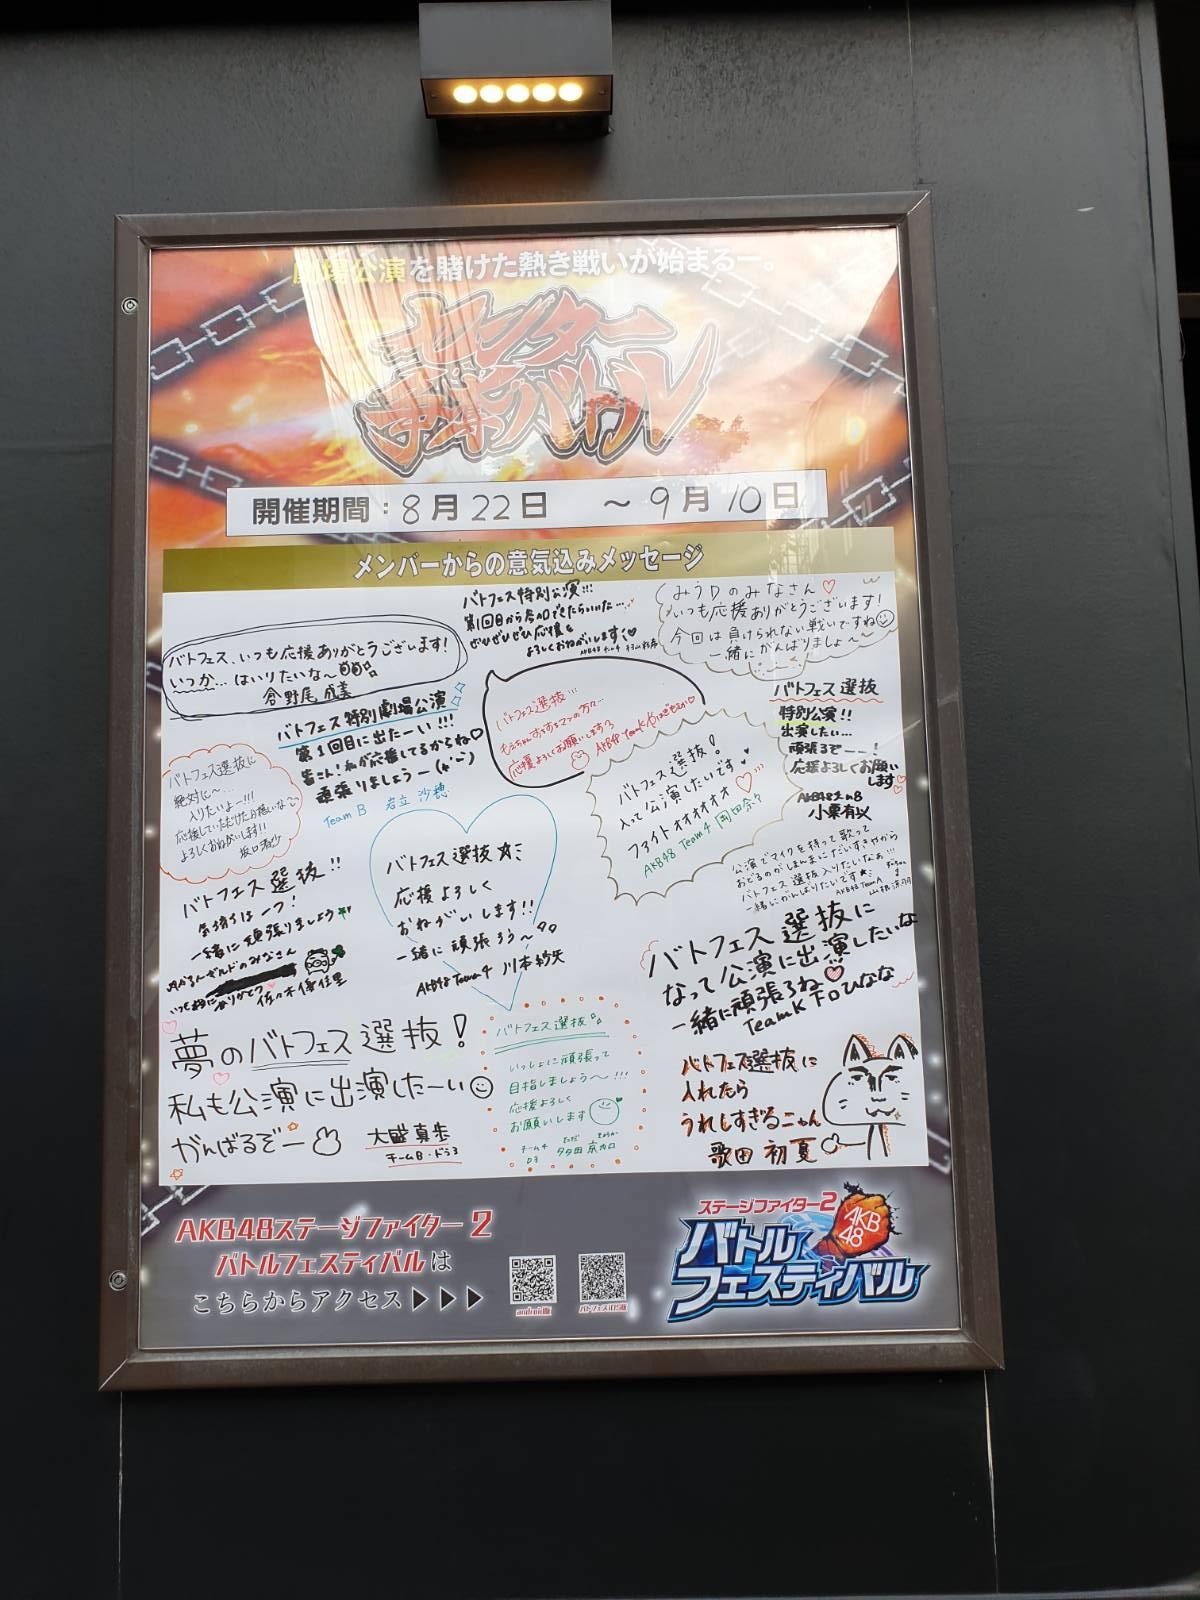 劇場公演を賭けた熱き戦いが始まるー。
センター
争奪バトル
開催期間：8月22日 ～9月10日
メンバーからの意気込みメッセージ
バトフェス特別公演!!!
ぜひぜひぜひ応援を
よろしくおねがいします
のみなさん♡
いつも応援ありがとうございます!
今回は負けられない戦いですね
一緒にがんばりましょ〜
バトフェス、いつも応援ありがとうございます!
いつか…はいりたいな〜
倉野尾成美
バトフェス特別劇場公演
第1回目に出たーい!!!
皆さん、私が応援してるからね♡
頑張りましょうー
Team B 岩立沙穂
バトフェス選抜!!!
応援よろしくお願いします
AKB48 TeamK
バトフェス選抜
特別公演!!
出演したい…
頑張るぞーー!
応援よろしくお願い
します♡
小栗有以
バトフェス選抜に
絶対に〜…
入りたいよー!!!
よろしくおねがいします!!
坂口渚沙
バトフェス選抜!
入って公演したいです♥
ファイトオオオオオ♡
AKB48 Team4 岡田奈々
バトフェス選抜★ミ
応援よろしく
おねがいします!!
一緒に頑張ろう〜
AKB48 Team4 川本紗矢
公演でマイクを持って歌って
おどるのがほんまにだいすきやから
バトフェス選抜入りたいなぁ!!!
一緒にがんばりたいです
AKB48 TeamA
バトフェス選抜!!
気持ちは一つ!
一緒に頑張りましょう
佐々木優佳里
バトフェス選抜に
なって公演に出演したいな
一緒に頑張ろね♡
TeamK 下口ひなな
夢のバトフェス選抜!
私も公演に出演したーい
がんばるぞー
大盛真歩
チームB・ドラ3
バトフェス選抜
いっしょに頑張って
目指しましょう〜!!!
応援よろしく
お願いします
チーム4
多田京加
バトフェス選抜に
入れたら
うれしすぎるニャん
歌田初夏
AKB48ステージファイター2
バトルフェスティバルは
こちらからアクセス▶▶▶
android版
バトフェスiOS版
ステージファイター2
AKB
48
バトル
フェスティバル